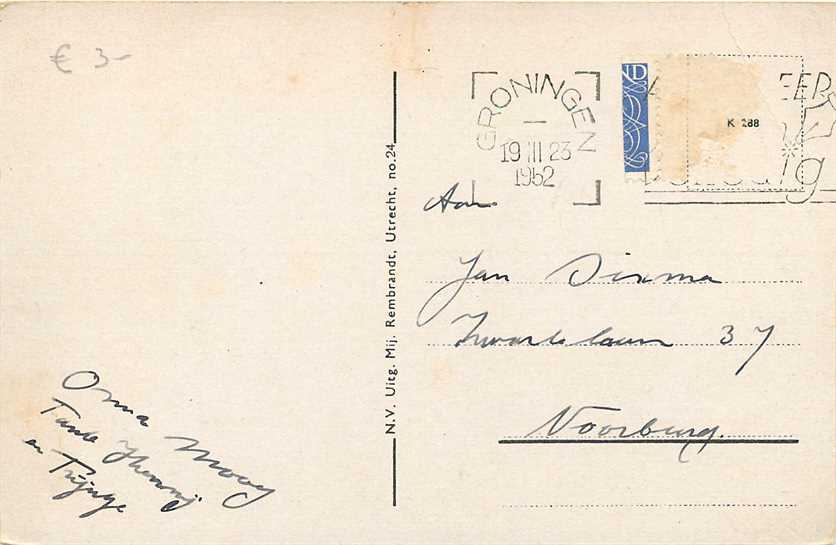 € 3-
GRONINGEN
19 III 23
1952
ND
K 288
Aan
Jan Dirkma
37
Voorburg.
N.V. Uitg. Mij. Rembrandt, Utrecht, no.24
Oma Mooy
Tante
en Trijntje